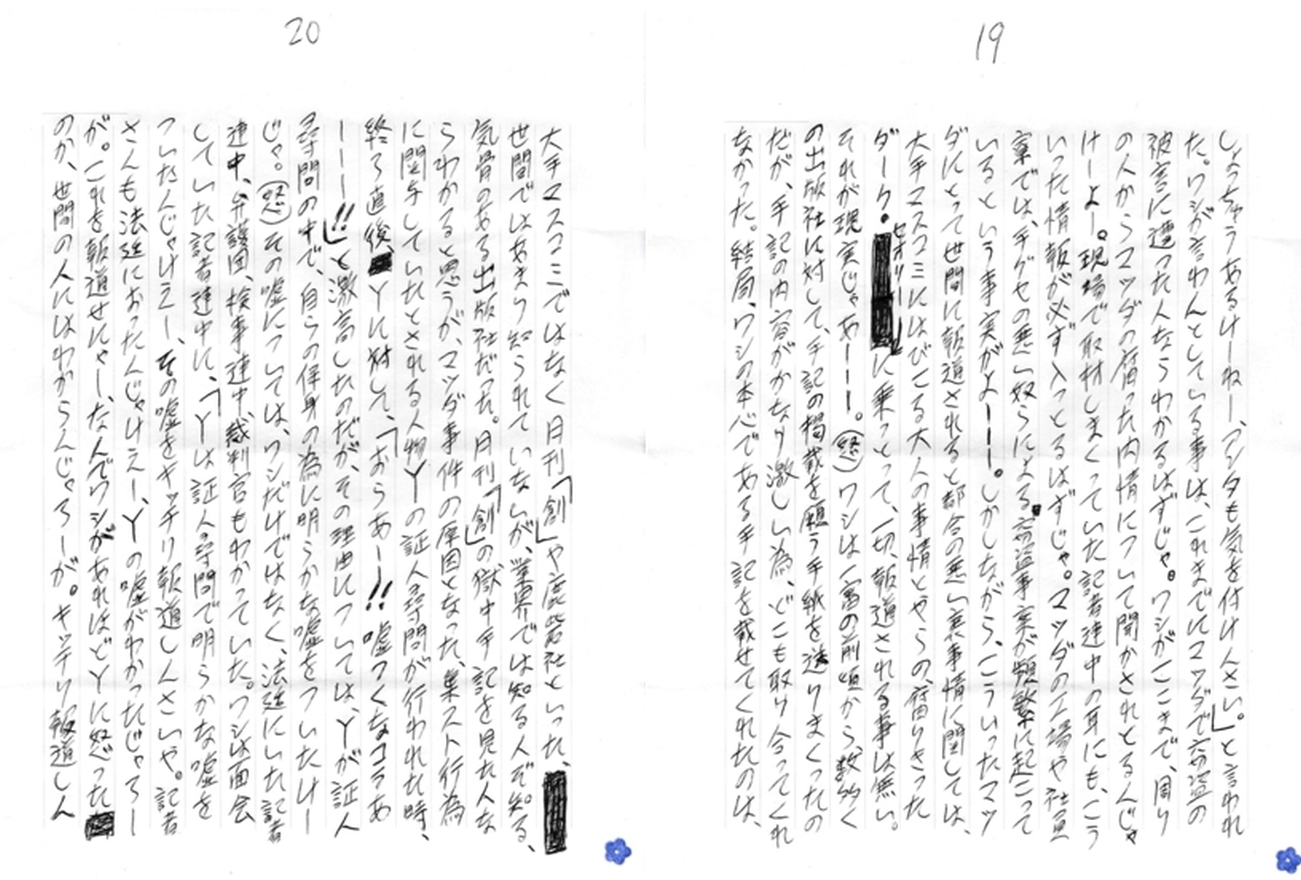 19
しょっちゅうあるけーねー、アンタも気を付けんさい。」と言われ
た。ワシが言わんとしている事は、これまでにマツダで窃盗の
被害に遭った人ならわかるはずじゃ。ワシがここまで、周り
の人からマツダの腐った内情について聞かされとるんじゃ
けーよー。現場で取材しまくっていた記者連中の耳にも、こう
いった情報が必ず入っとるはずじゃ。マツダの工場や社員
寮では、手グセの悪い奴らによる窃盗事案が頻繁に起こって
いるという事実がよーー。しかしながら、こういったマツ
ダにとって世間に報道されると都合の悪い裏事情に関しては、
大手マスコミにはびこる大人の事情とやらの、腐りきった
ダーク。セオリー」に乗っとって、一切、報道される事は無い。
それが現実じゃあーーー。(怒)ワシは一審の前頃から、数多く
の出版社に対して、手記の掲載を願う手紙を送りまくったの
だが、手記の内容がかなり激しい為、どこも取り合ってくれ
なかった。結局、ワシの本心である手記を載せてくれたのは、
20
大手マスコミではなく月刊「創」や鹿砦社といった、
世間ではあまり知られていないが、業界では知る人ぞ知る、
気骨のある出版社だった。月刊「創」の獄中手記を見た人な
らわかると思うが、マツダ事件の原因となった、集スト行為
に関与していたとされる人物Yの証人尋問が行われた時、
終了直後Yに対して、「おらあー!!嘘つくなコラあ
ーーーー!!」と激高したのだが、その理由については、Yが証人
尋問の中で、自らの保身の為に明らかな嘘をついたけー
じゃ。(怒)その嘘については、ワシだけではなく、法廷にいた記者
連中、弁護団、検事連中、裁判官もわかっていた。ワシは面会
していた記者連中に、「Yは証人尋問で明らかな嘘を
ついたんじゃけえー、その嘘をキッチリ報道しんさいや。記者
さんも法廷におったんじゃけえー、Yの嘘がわかったじゃろー
が。これを報道せにゃー、なんでワシがあれほどYに怒った
のか、世間の人にはわからんじゃろーが。キッチリ報道しん